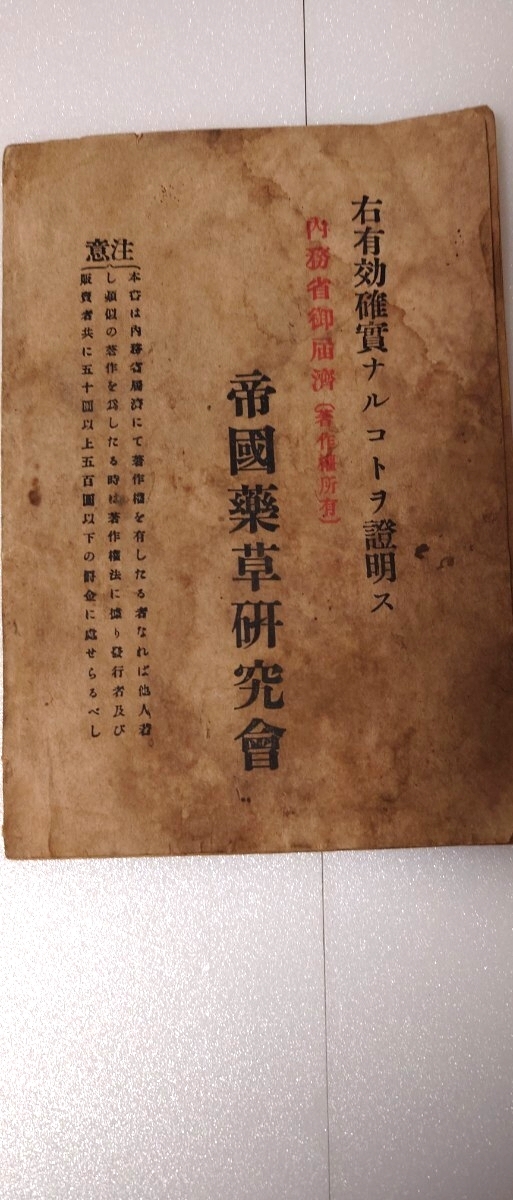 右有効確實ナルコトヲ證明ス
内務省御届濟(著作權所有)
帝國藥草研究會
注意
本書は内務省届濟にて著作權を有したる者なれば他人若
し類似の著作を爲したる時は著作權法に據り發行者及び
販賣者共に五十圓以上五百圓以下の罰金に處せらるべし